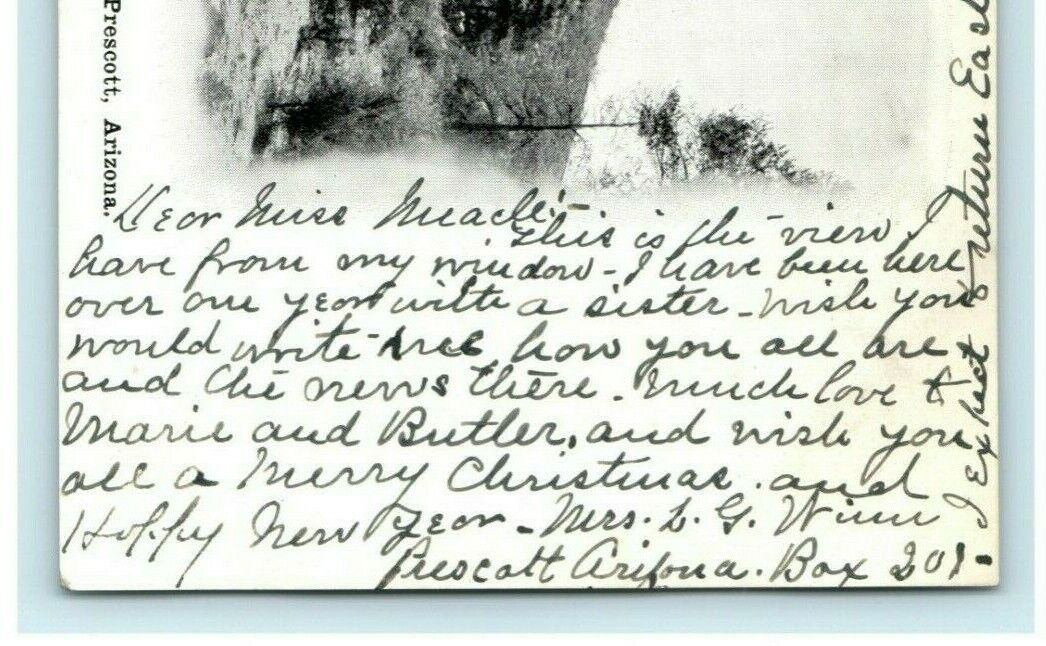 Prescott, Arizona.
Dear Miss Meade:
This is the view I
have from my window - I have been here
over one year with a sister - wish you
would write me how you all are
and the news there. Much love to
Marie and Butler, and wish you
all a Merry Christmas. and
Happy New Year - Mrs. L. G. Winn
Prescott Arizona. Box 201-
I expect to return East